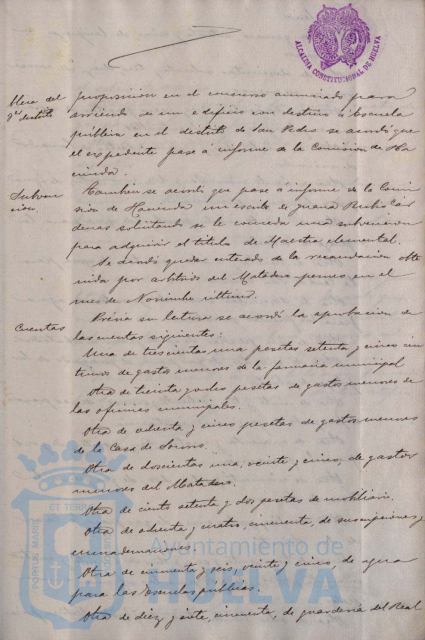 ALCALDIA CONSTITUCIONAL DE HUELVA
proposicion en el concurso anunciado para
arriendo de un edificio con destino á Escuela
pública en el distrito de San Pedro se acordó que
el expediente pase á informe de la Comision de Ha
cienda.
Subven
cion.
Tambien se acordó que pase á informe de la Comi
sion de Hacienda un escrito de Juana Rubio Car
denas solicitando se le conceda una subvencion
para adquirir el titulo de Maestra elemental.
Se acordó quedar enterado de la recaudacion obte
nida por arbitrios del Matadero en el
mes de Noviembre último.
Cuentas
Prévia su lectura se acordó la aprobacion de
las cuentas siguientes:
Una de trescientas una pesetas setenta y cinco cén
timos de gastos menores de la farmacia municipal
Otra de treinta y dos pesetas de gastos menores de
las oficinas municipales.
Otra de ochenta y cinco pesetas de gastos menores
de la Casa de Socorro.
Otra de doscientas una, veinte y cinco, de gastos
menores del Matadero.
Otra de ciento setenta y dos pesetas de mobiliario.
Otra de ochenta y cuatro, cincuenta, de suscripciones y
encuadernaciones.
Otra de cincuenta y seis, veinte y cinco, de agua
para las Escuelas públicas.
Otra de diez y siete, cincuenta, de guarderia del Real
PORTUS MARIS ET TERRAE
Ayuntamiento de
HUELVA